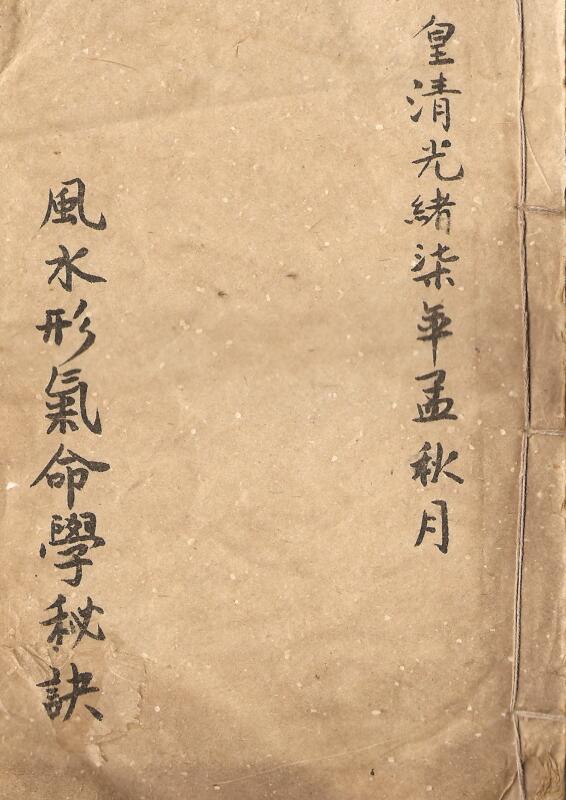 皇清光緒柒年孟秋月
風水形氣命學秘訣